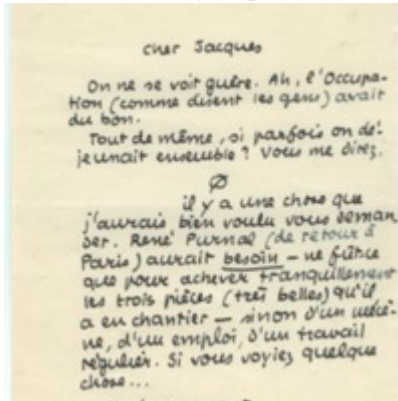 cher Jacques
On ne se voit guère. Ah, l'Occupa-
tion (comme disent les gens) avait
du bon.
Tout de même, si parfois on dé-
jeunait ensemble ? Vous me direz.
Ø
il y a une chose que
j'aurais bien voulu vous deman
der. René Purnal (de retour à
Paris) aurait besoin – ne fût-ce
que pour achever tranquillement
les trois pièces (très belles) qu'il
a en chantier – sinon d'un mécè-
ne, d'un emploi, d'un travail
régulier. Si vous voyiez quelque
chose...